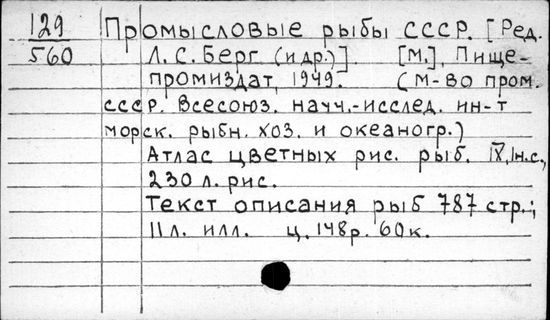 129 Промысловые рыбы СССР. [Ред.
560 Л. С. Берг (и др.)]. [М.], Пище-
промиздат, 1949. (М-во пром.
СССР. Всесоюз. научн.-исслед. ин-т
морск. рыбн. хоз. и океаногр.)
Атлас цветных рис. рыб. IX, 1н.с.,
230 л. рис.
Текст описания рыб 787 стр.;
11 л. илл. ц. 148р. 60к.